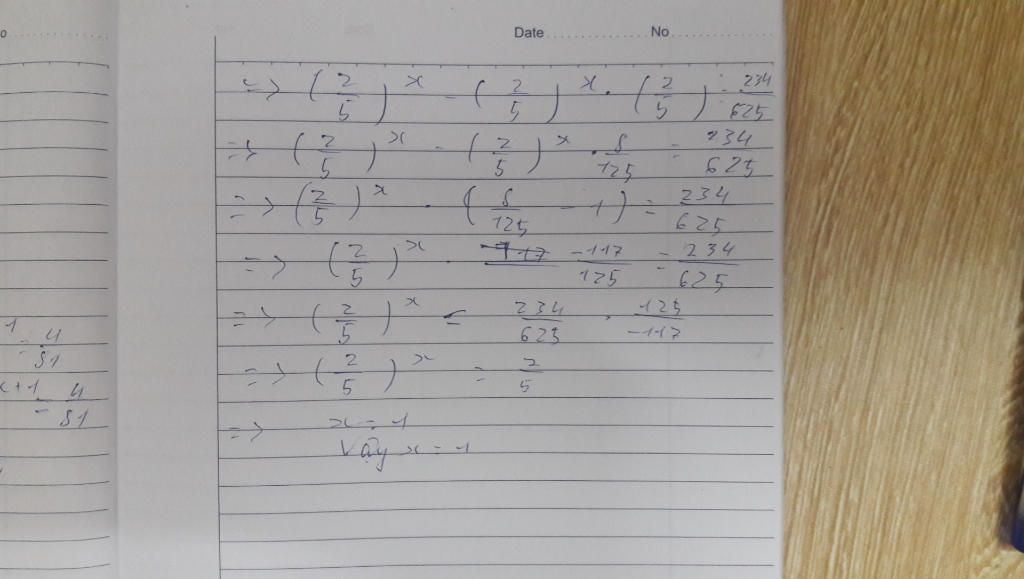 Date No
=> (2/5)^x - (2/5)^x . (2/5) = 234/625
=> (2/5)^x - (2/5)^x . 8/125 = 234/625
=> (2/5)^x . (8/125 - 1) = 234/625
=> (2/5)^x . -117/125 = 234/625
=> (2/5)^x = 234/625 . 125/-117
=> (2/5)^x = 2/5
=> x = 1
Vậy x = 1
1 = 4/81
x+1 = 4/81